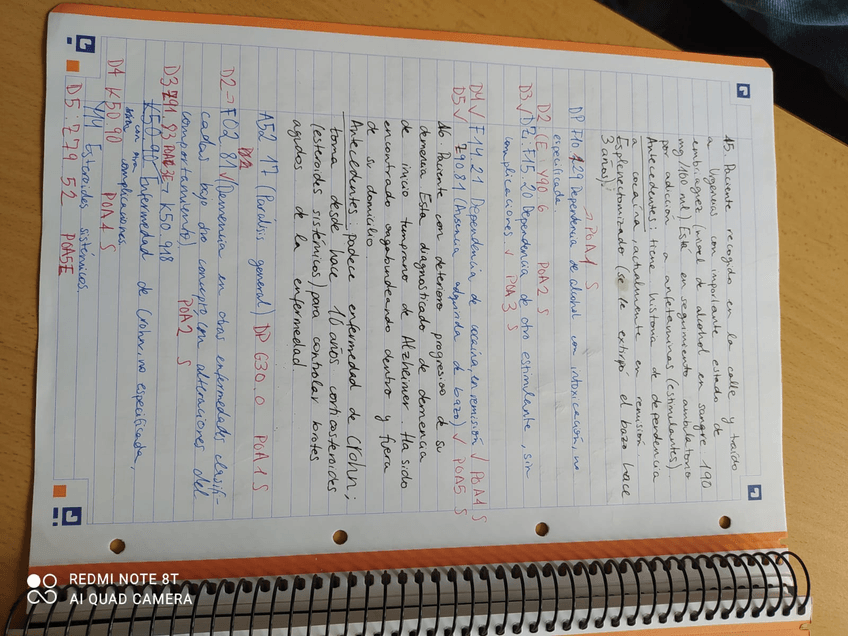 15. Paciente recogido en la calle y traído
a Urgencias con importante estado de
embriaguez (nivel de alcohol en sangre 190
mg/100 ml). Está en seguimiento ambulatorio
por adicción a anfetaminas (estimulantes)
Antecedentes: tiene historia de dependencia
a cocaína, actualmente en remisión
Esplenectomizado (se le extirpó el bazo hace
3 años).
→ POA1 S
DP F10 229 Dependencia de alcohol con intoxicación, no
especificada.
D2 E Y90 6 POA2 S
D3 √ D2: F15 20 Dependencia de otro estimulante, sin
complicaciones. √ POA 3 S
D4 √ F14 21 Dependencia de cocaína, en remisión √ POA4 S
D5 √ Z90 81 (Ausencia adquirida de bazo) √ POA5 S
16. Paciente con deterioro progresivo de su
demencia Esta diagnosticado de demencia
de inicio temprano de Alzheimer. Ha sido
encontrado vagabundeando dentro y fuera
de su domicilio
Antecedentes: padece enfermedad de Crohn;
toma desde hace 10 años corticosteroides
(esteroides sistémicos) para controlar brotes
agudos de la enfermedad
A52 17 (Parálisis general) DP G30.0 POA1 S
D2 → F02 81 √ (Demencia en otras enfermedades clasifi-
cadas bajo otro concepto con alteraciones del
comportamiento) POA2 S
D3 Z91 83 POA3E - K50.918
K50-90 Enfermedad de Crohn, no especificada,
sin complicaciones
D4 K50.90 POA4 S
Y14 Esteroides sistémicos.
D5: Z79 52 POA5E
REDMI NOTE 8T
AI QUAD CAMERA